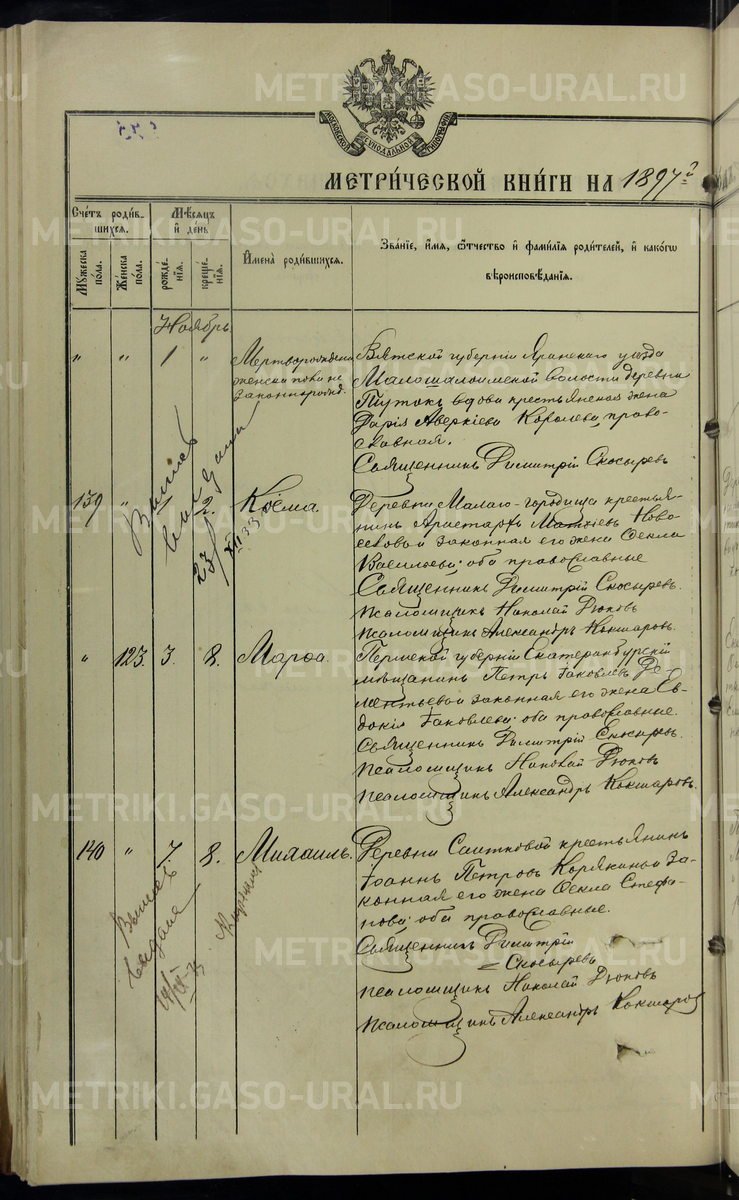 МОСКОВСКОЙ СѴНОДАЛЬНОЙ ТИПОГРАФІИ
МЕТРИ́ЧЕСКОЙ КНИ́ГИ НА 1897 г.
Сче́тъ роди́в-
шихся.
Му́жеска по́ла.
Же́нска по́ла.
Мѣ́сяцъ
и҆ де́нь
рожде́-
нія.
креще́-
нія.
И҆мена̀ роди́вшихся.
Зва́ніе, и҆́мя, ѻ҆́тчество и҆ фами́лія роди́телей, и҆ како́гѡ
вѣроисповѣ́данія.
Ноябрь
" " 1 " Мертворожденн
женска пола не
законнорожд.
Вятской губерніи Яранскаго уѣзда
волости деревни
вдова крестьянская жена
Дарія Аверкіева Королева, право-
славная.
Священникъ Димитрій Скосыревъ
139 " 2. Косма.
Деревни Малаго-городища крестья-
нинъ Аристархъ Ново-
селовъ и законная его жена Ѳекла
Васильева; оба православные
Священникъ Димитрій Скосыревъ.
псаломщикъ Николай Дюковъ
псаломщикъ Александръ Кокшаровъ.
" 123. 3. 8. Марѳа.
Пермской губерніи Екатеринбургскій
мѣщанинъ Петръ Іаковлевъ Де-
ментьевъ и законная его жена Ев-
докія Іаковлева; оба православные.
Священникъ Димитрій Скосыревъ.
псаломщикъ Николай Дюковъ
псаломщикъ Александръ Кокшаровъ.
140 " 7 8. Михаилъ.
Деревни крестьянинъ
Іоаннъ Петровъ Корякинъ и за-
конная его жена Ѳекла Стефа-
нова; оба православные.
Священникъ Димитрій
Скосыревъ
псаломщикъ Николай Дюковъ
псаломщикъ Александръ Кокшаровъ
METRIKI.GASO-URAL.RU